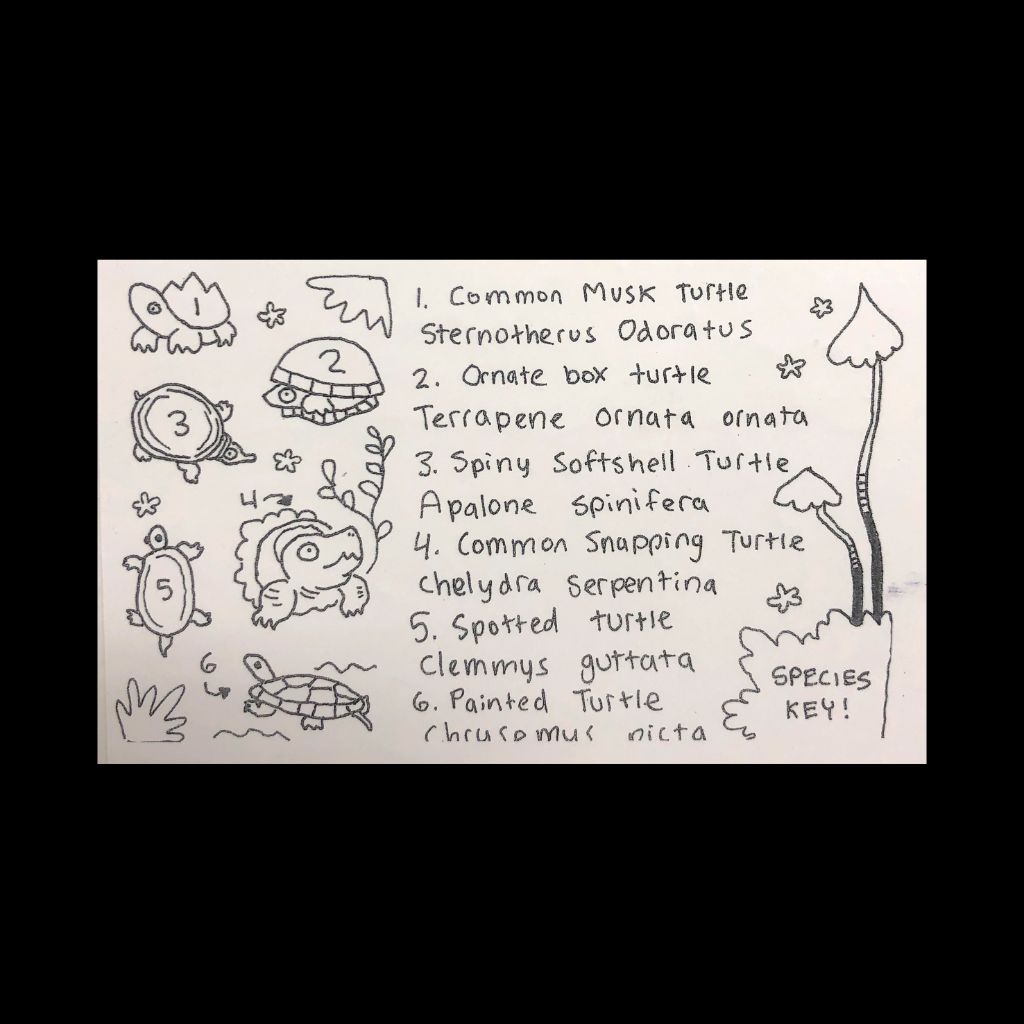 1
2
3
4
5
6
1. Common Musk Turtle
Sternotherus Odoratus
2. Ornate box turtle
Terrapene ornata ornata
3. Spiny Softshell Turtle
Apalone spinifera
4. Common Snapping Turtle
Chelydra Serpentina
5. Spotted turtle
Clemmys guttata
6. Painted Turtle
SPECIES
KEY!